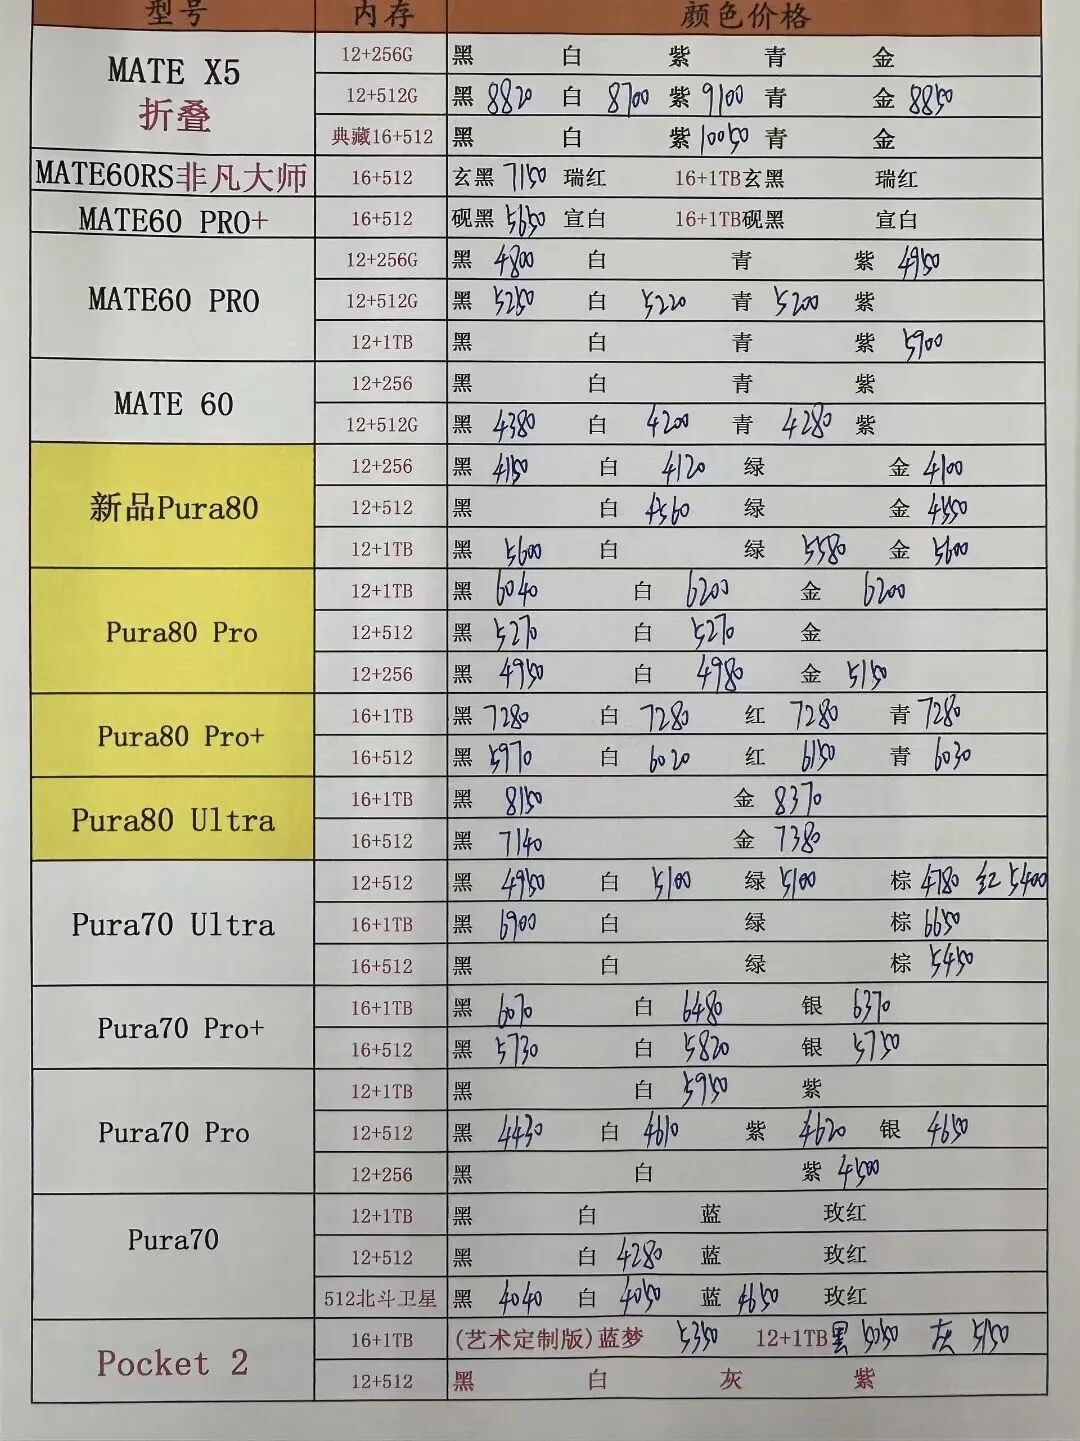 型号 内存 颜色价格
MATE X5 折叠 12+256G 黑 白 紫 青 金
12+512G 黑 8820 白 8700 紫 9100 青 金 8850
典藏16+512 黑 白 紫 10050 青 金
MATE60RS非凡大师 16+512 玄黑 7150 瑞红 16+1TB玄黑 瑞红
MATE60 PRO+ 16+512 砚黑 5650 宣白 16+1TB砚黑 宣白
MATE60 PRO 12+256G 黑 4800 白 青 紫 4950
12+512G 黑 5250 白 5220 青 5200 紫
12+1TB 黑 白 青 紫 5900
MATE 60 12+256 黑 白 青 紫
12+512G 黑 4380 白 4200 青 4280 紫
新品Pura80 12+256 黑 4150 白 4120 绿 金 4100
12+512 黑 白 4560 绿 金 4550
12+1TB 黑 5600 白 绿 5580 金 5600
Pura80 Pro 12+1TB 黑 6040 白 6200 金 6200
12+512 黑 5270 白 5270 金
12+256 黑 4950 白 4980 金 5150
Pura80 Pro+ 16+1TB 黑 7280 白 7280 红 7280 青 7280
16+512 黑 5970 白 6020 红 6150 青 6030
Pura80 Ultra 16+1TB 黑 8150 金 8370
16+512 黑 7140 金 7380
Pura70 Ultra 12+512 黑 4950 白 5100 绿 5100 棕 4780 红 5400
16+1TB 黑 6900 白 绿 棕 6650
16+512 黑 白 绿 棕 5450
Pura70 Pro+ 16+1TB 黑 6070 白 6480 银 6370
16+512 黑 5730 白 5820 银 5750
Pura70 Pro 12+1TB 黑 白 5950 紫
12+512 黑 4430 白 4610 紫 4620 银 4650
12+256 黑 白 紫 4500
Pura70 12+1TB 黑 白 蓝 玫红
12+512 黑 白 4280 蓝 玫红
512北斗卫星 黑 4040 白 4050 蓝 4650 玫红
Pocket 2 16+1TB (艺术定制版)蓝梦 5350 12+1TB黑 5050 灰 5150
12+512 黑 白 灰 紫